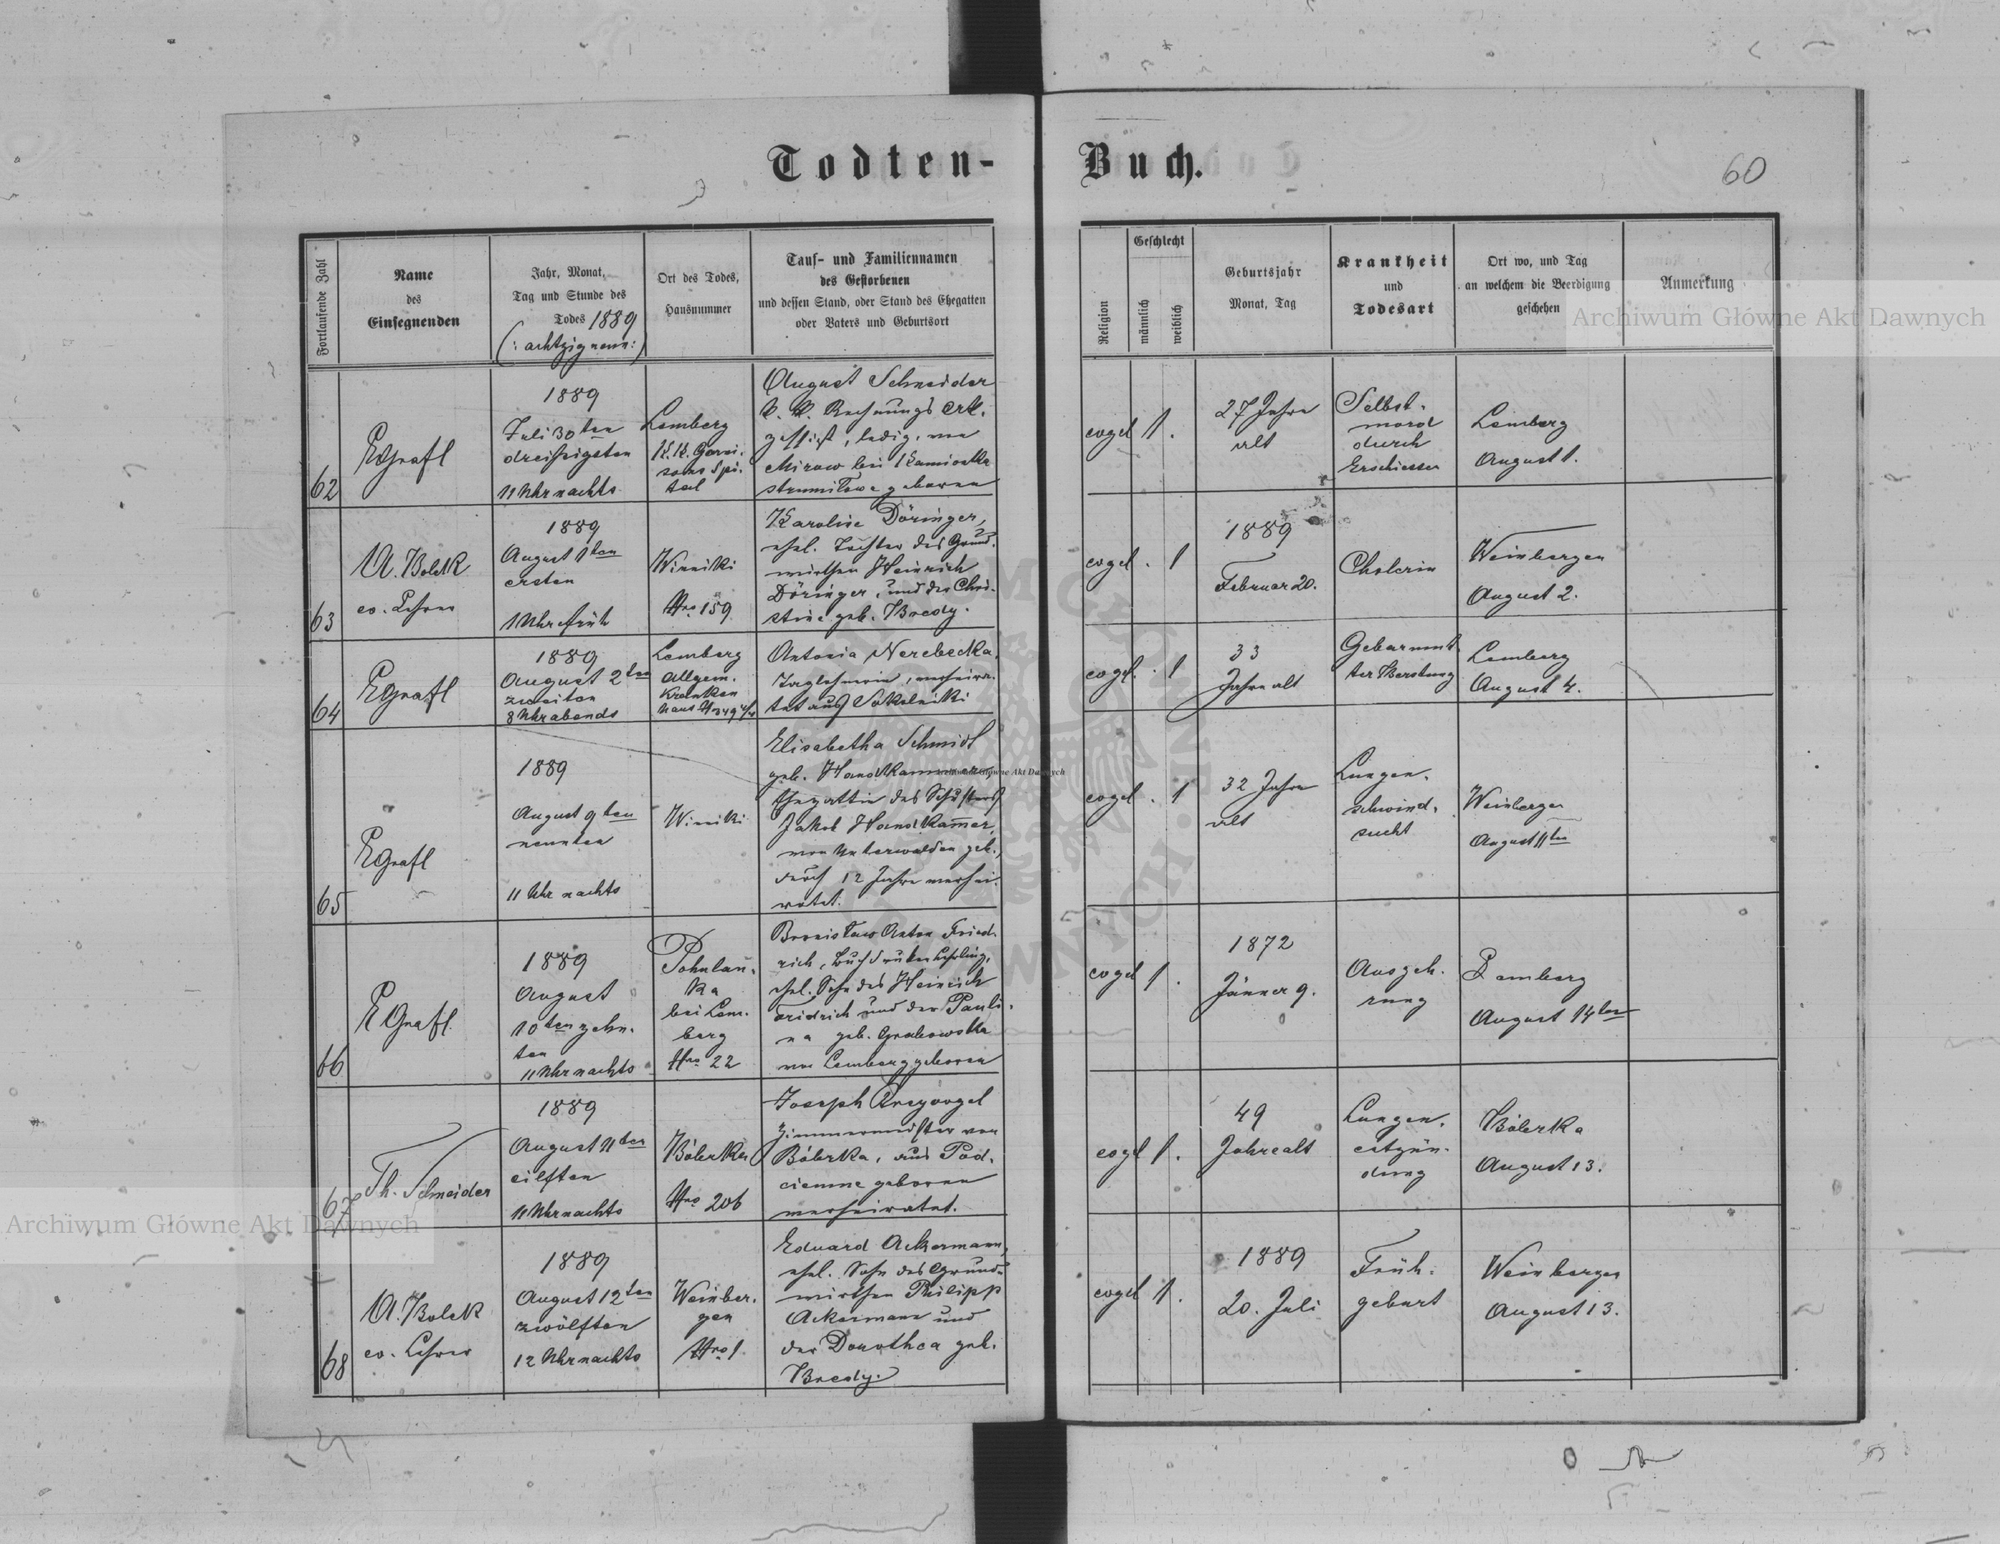 Todten-Buch.
60
Fortlaufende Zahl
Name
des
Einsegnenden
Jahr, Monat,
Tag und Stunde des
Todes 1889
(: achtzig neun :)
Ort des Todes,
Hausnummer
Tauf- und Familiennamen
des Gestorbenen
und dessen Stand, oder Stand des Ehegatten
oder Vaters und Geburtsort
Religion
Geschlecht
männlich
weiblich
Geburtsjahr
Monat, Tag
Krankheit
und
Todesart
Ort wo, und Tag
an welchem die Beerdigung
geschehen
Anmerkung
Archiwum Główne Akt Dawnych
62
EGrafl
1889
Juli 30ten
dreißigsten
11 Uhr nachts
Lemberg
K. K. Garni-
sons Spi-
tal
August Schneider
k. k. Rechnungs
ledig, von
bei Kamionka
strumiłowa geboren
evgel
1
.
27 Jahre
alt
Selbst-
mord
durch
Erschiessen
Lemberg
August 1.
63
A. Bolek
ev. Lehrer
1889
August 1ten
ersten
1 Uhr früh
Winniki
Nro 159
Karoline Döringer,
ehel. Tochter des Grund-
wirthen Heinrich
Döringer, und der Chri-
stine geb. Bredy.
evgel
.
1
1889
Februar 20.
Cholerin
Weinbergen
August 2.
64
EGrafl
1889
August 2ten
zweiten
8 Uhr abends
Lemberg
Allgem.
Kranken
haus
Antonia Nerebecka,
Taglöhnerin, verheira-
tet aus Sokolniki
evgel.
.
1
33
Jahre alt
Gebärmut-
ter Berstung
Lemberg
August 4.
65
EGrafl
1889
August 9ten
neunten
11 Uhr nachts
Winniki
Elisabetha Schmidt
geb. Handkammer,
Ehegattin des Schusters
Jakob Handkam̄er,
von Unterwalden geb.,
durch 12 Jahre verhei-
ratet.
Archiwum Główne Akt Dawnych
evgel
.
1
32 Jahre
alt
Lungen-
schwind-
sucht
Weinbergen
August 11ten
66
EGrafl.
1889
August
10ten zehn-
ten
11 Uhr nachts
Pohulan-
ka
bei Lem-
berg
Nro 22
Bronisław Anton Fried-
rich, Buchdrukerlehrling,
ehel. Sohn des Heinrich
Fridrich und der Pauli-
na geb. Grabowska
von Lemberg geboren
evgel
1
.
1872
Jänner 9.
Auszeh-
rung
Lemberg
August 14ten
67
Th. Schneider
1889
August 11ten
eilften
11 Uhr nachts
Bóbrka
Nro 206
Joseph Freyvogel
Zimmermeister von
Bóbrka, aus Pod-
ciemne geboren
verheiratet.
evgel
1
.
49
Jahre alt
Lungen-
entzün-
dung
Bóbrka
August 13.
Archiwum Główne Akt Dawnych
68
A. Bolek
ev. Lehrer
1889
August 12ten
zwölften
12 Uhr nachts
Weinber-
gen
Nro 1.
Eduard Ackermann,
ehel. Sohn des Grund-
wirthen Philipp
Ackermann und
der Dorothea geb.
Bredy.
evgel
1
.
1889
20. Juli
Früh-
geburt
Weinbergen
August 13.